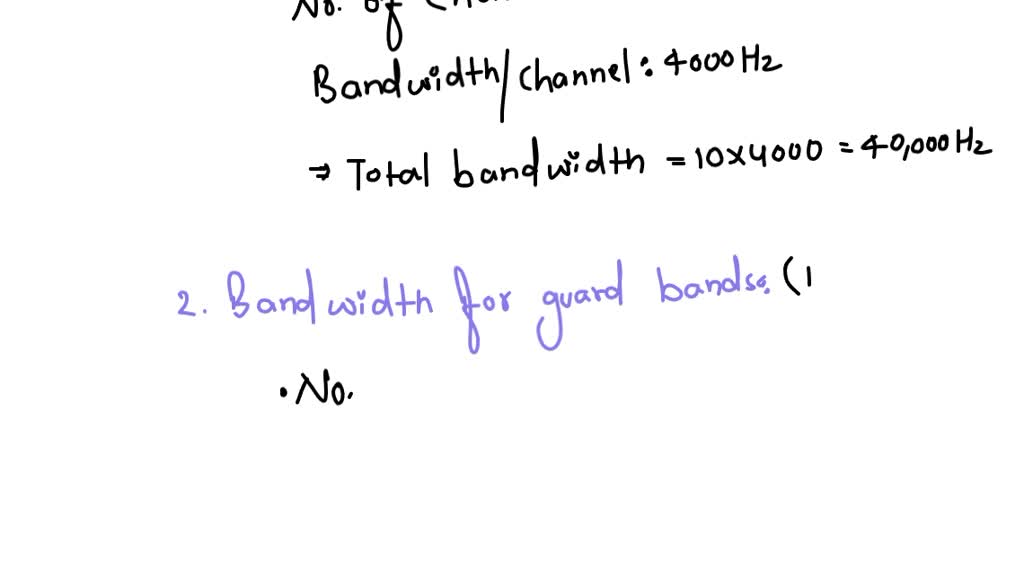 No. of
Bandwidth/channel: 4000 Hz
⇒ Total bandwidth = 10×4000 = 40,000 Hz
2. Bandwidth for guard bands: (
• No.